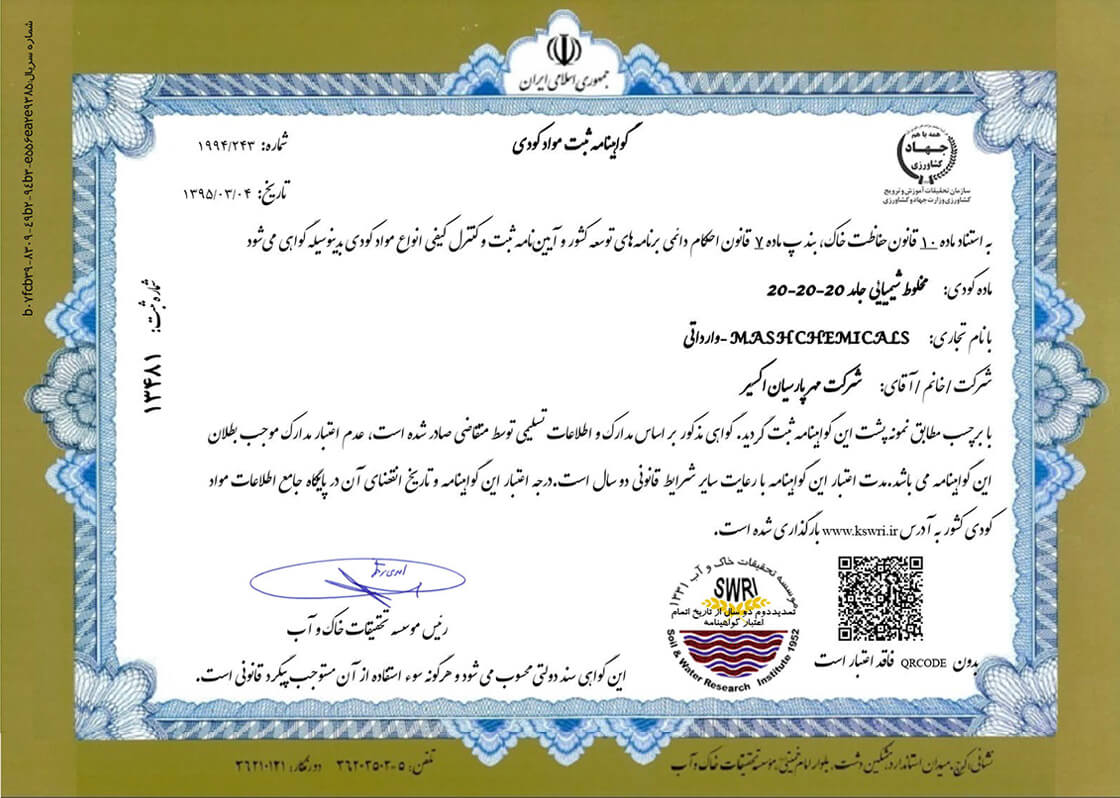 شماره سریال: b۰۷fcb۳۹-۸۳۰۹-٤۹b۲-۹٤b۳-e۵۵۶eare۹۳۸۵
جمهوری اسلامی ایران
همه با هم
جهاد
کشاورزی
سازمان تحقیقات آموزش و ترویج
کشاورزی وزارت جهاد کشاورزی
گواهینامه ثبت مواد کودی
شماره: ۱۹۹۴/۲۴۳
تاریخ: ۱۳۹۵/۰۳/۰۴
به استناد ماده ۱۰ قانون حفاظت خاک، بند پ ماده ۷ قانون احکام دائمی برنامه های توسعه کشور و آیین نامه ثبت و کنترل کیفی انواع مواد کودی بدینوسیله گواهی می شود
ماده کودی: مخلوط شیمیایی جامد 20-20-20
با نام تجاری: MASHCHEMICALS -وارداتی
شرکت/خانم/آقای: شرکت مهر پارسیان اکسیر
شماره ثبت: ۱۳۴۸۱
با برچسب مطابق نمونه پشت این گواهینامه ثبت گردید. گواهی مذکور بر اساس مدارک و اطلاعات تسلیمی توسط متقاضی صادر شده است، عدم اعتبار مدارک موجب بطلان
این گواهینامه می باشد.مدت اعتبار این گواهینامه با رعایت سایر شرایط قانونی دو سال است.درجه اعتبار این گواهینامه و تاریخ انقضای آن در پایگاه جامع اطلاعات مواد
کودی کشور به آدرس www.kswri.ir بارگذاری شده است.
موسسه تحقیقات خاک و آب ۱۳۳۱
SWRI
تمدیددوم دو سال از تاریخ اتمام
اعتبار گواهینامه
Soil & Water Research Institute 1952
بدون QRCODE فاقد اعتبار است
رئیس موسسه تحقیقات خاک و آب
این گواهی سند دولتی محسوب می شود و هرگونه سوء استفاده از آن مستوجب پیگرد قانونی است.
نشانی: کرج، میدان استاندارد، مشکین دشت، بلوار امام خمینی، موسسه تحقیقات خاک و آب
تلفن: ۵-۳۶۲۰۲۵۰۲ دورنگار: ۳۶۲۱۰۱۲۱